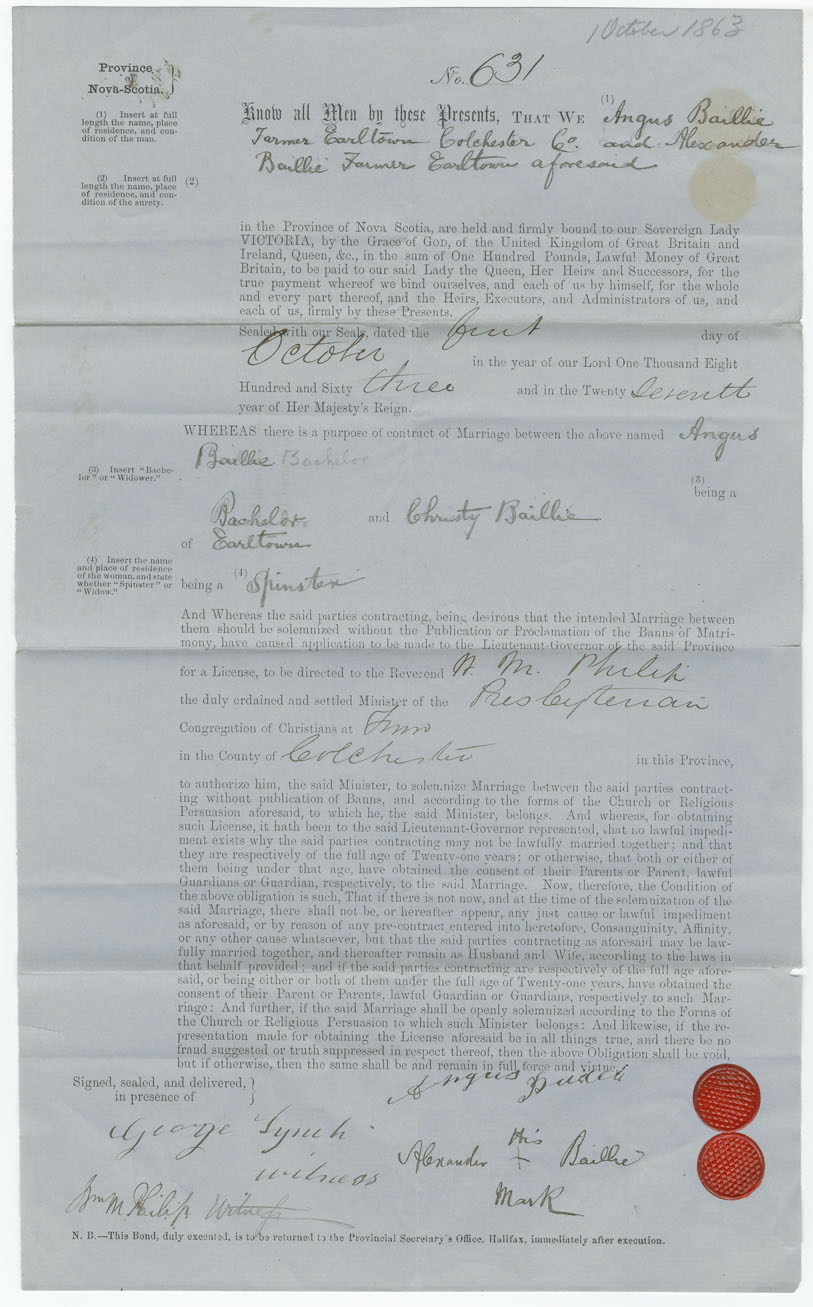 1 October 1863
Province
of
Nova-Scotia.
No. 631
(1) Insert at full
length the name, place
of residence, and con-
dition of the man.
Know all Men by these Presents, THAT WE (1) Angus Baillie
Farmer Earltown Colchester Co. and Alexander
Baillie Farmer Earltown aforesaid
(2) Insert at full
length the name, place
of residence, and con-
dition of the surety.
(2)
in the Province of Nova Scotia, are held and firmly bound to our Sovereign Lady
VICTORIA, by the Grace of GOD, of the United Kingdom of Great Britain and
Ireland, Queen, &c., in the sum of One Hundred Pounds, Lawful Money of Great
Britain, to be paid to our said Lady the Queen, Her Heirs and Successors, for the
true payment whereof we bind ourselves, and each of us by himself, for the whole
and every part thereof, and the Heirs, Executors, and Administrators of us, and
each of us, firmly by these Presents.
Sealed with our Seals, dated the first day of
October in the year of our Lord One Thousand Eight
Hundred and Sixty three and in the Twenty Seventh
year of Her Majesty's Reign.
WHEREAS there is a purpose of contract of Marriage between the above named Angus
Baillie Bachelor
(3) Insert "Bache-
lor" or "Widower."
(3)
being a
Bachelor and Christy Baillie
of Earltown
(4) Insert the name
and place of residence
of the woman, and state
whether "Spinster" or
"Widow."
being a (4) Spinster
And Whereas the said parties contracting, being desirous that the intended Marriage between
them should be solemnized without the Publication or Proclamation of the Banns of Matri-
mony, have caused application to be made to the Lieutenant-Governor of the said Province
for a License, to be directed to the Reverend W. M. Philip
the duly ordained and settled Minister of the Presbyterian
Congregation of Christians at
in the County of Colchester in this Province,
to authorize him, the said Minister, to solemnize Marriage between the said parties contract-
ing without publication of Banns, and according to the forms of the Church or Religious
Persuasion aforesaid, to which he, the said Minister, belongs. And whereas, for obtaining
such License, it hath been to the said Lieutenant-Governor represented, that no lawful impedi-
ment exists why the said parties contracting may not be lawfully married together; and that
they are respectively of the full age of Twenty-one years; or otherwise, that both or either of
them being under that age, have obtained the consent of their Parents or Parent, lawful
Guardians or Guardian, respectively, to the said Marriage. Now, therefore, the Condition of
the above obligation is such, That if there is not now, and at the time of the solemnization of the
said Marriage, there shall not be, or hereafter appear, any just cause or lawful impediment
as aforesaid, or by reason of any pre-contract entered into heretofore, Consanguinity, Affinity,
or any other cause whatsoever, but that the said parties contracting as aforesaid may be law-
fully married together, and thereafter remain as Husband and Wife, according to the laws in
that behalf provided; and if the said parties contracting are respectively of the full age afore-
said, or being either or both of them under the full age of Twenty-one years, have obtained the
consent of their Parent or Parents, lawful Guardian or Guardians, respectively to such Mar-
riage: And further, if the said Marriage shall be openly solemnized according to the Forms of
the Church or Religious Persuasion to which such Minister belongs: And likewise, if the re-
presentation made for obtaining the License aforesaid be in all things true, and there be no
fraud suggested or truth suppressed in respect thereof, then the above Obligation shall be void,
but if otherwise, then the same shall be and remain in full force and virtue.
Signed, sealed, and delivered,
in presence of
Angus
George Lynch
witness
Alexander His Baillie
Mark
Wm M. Philip Witness
N. B.—This Bond, duly executed, is to be returned to the Provincial Secretary's Office, Halifax, immediately after execution.